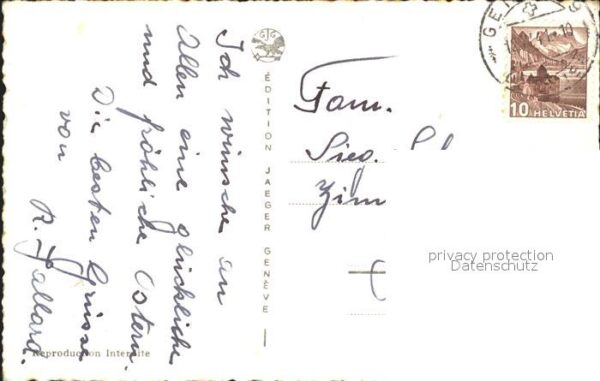 Ich wünsche an
Allen eine glückliche
und fröhliche Ostern.
Die besten Grüsse
von
R. Jallard.
Reproduction Interdite
ÉDITION JAEGER GENÈVE
Fam.
Sieg.
Zim
10 HELVETIA
privacy protection
Datenschutz